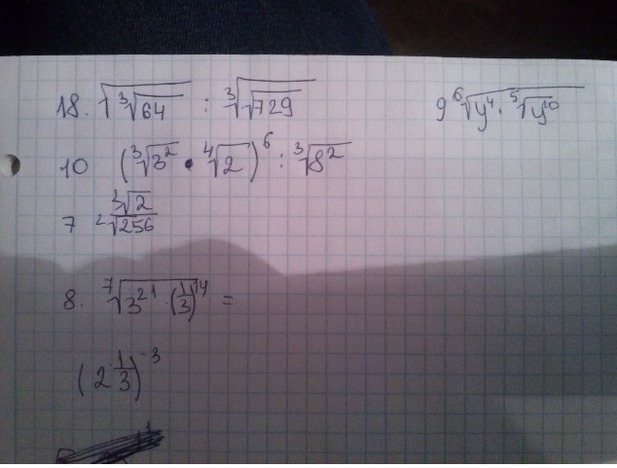 18. √(∛64) : ∛(√729)
9 ⁶√(y⁴ · ⁵√y¹⁰)
10 (∛3² · ⁴√2)⁶ : ∛8²
7 ²√2 / ²√256
8. ⁷√(3²¹ · (1/3)¹⁴) =
(2 1/3)⁻³